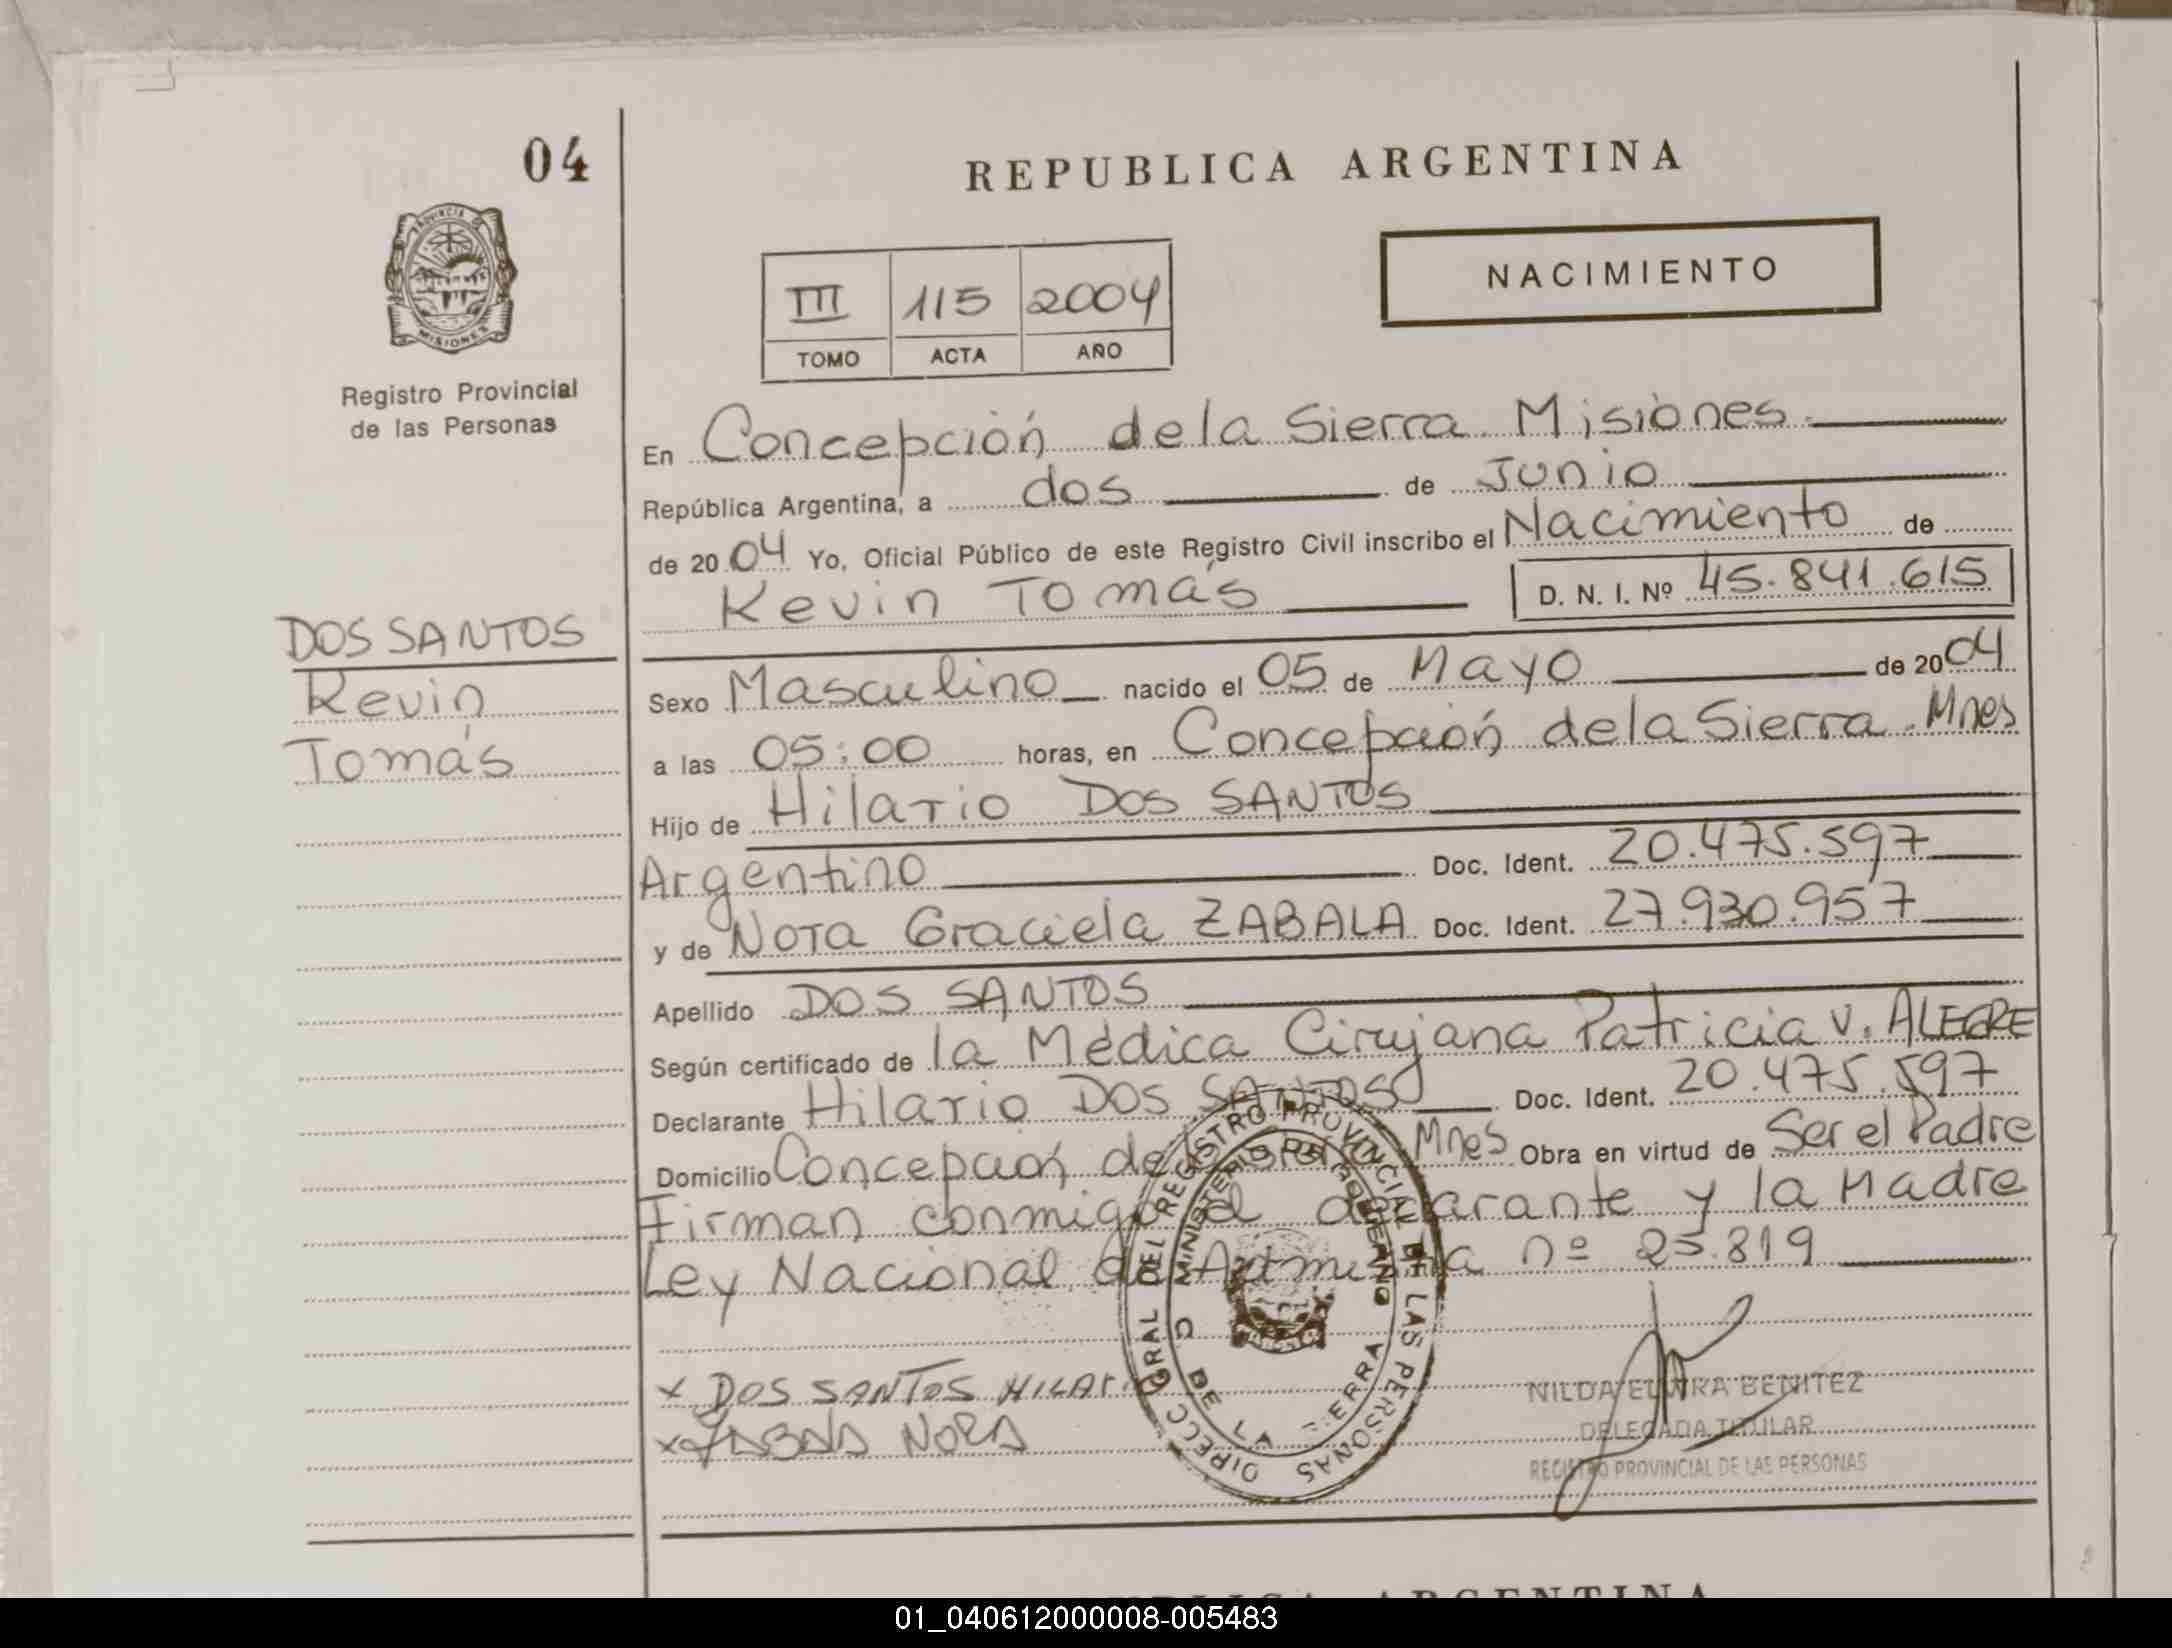 04
REPUBLICA ARGENTINA
PROVINCIA DE
MISIONES
NACIMIENTO
III 115 2004
TOMO ACTA AÑO
Registro Provincial
de las Personas
En Concepción de la Sierra. Misiones.
República Argentina, a dos de Junio
de 2004 Yo, Oficial Público de este Registro Civil inscribo el Nacimiento de
Kevin Tomás D. N. I. Nº 45.841.615
DOS SANTOS
Kevin
Tomás
Sexo Masculino nacido el 05 de Mayo de 2004
a las 05:00 horas, en Concepción de la Sierra. Mnes
Hijo de Hilario DOS SANTOS
Argentino Doc. Ident. 20.475.597
y de Nora Graciela ZABALA Doc. Ident. 27.930.957
Apellido DOS SANTOS
Según certificado de la Médica Cirujana Patricia V. ALEGRE
Declarante Hilario DOS SANTOS Doc. Ident. 20.475.597
Domicilio Concepción de la Mnes Obra en virtud de Ser el Padre
Firman conmigo el declarante y la Madre
Ley Nacional de Amnistía nº 25.819
x DOS SANTOS HILARI
x ZABALA NORA
DIRECC GRAL DEL REGISTRO PROVINCIAL DE LAS PERSONAS
MINISTERIO DE GOBIERNO
C DE LA SIERRA
NILDA ELVIRA BENITEZ
DELEGADA TITULAR
REGISTRO PROVINCIAL DE LAS PERSONAS
ARGENTINA
01_040612000008-005483